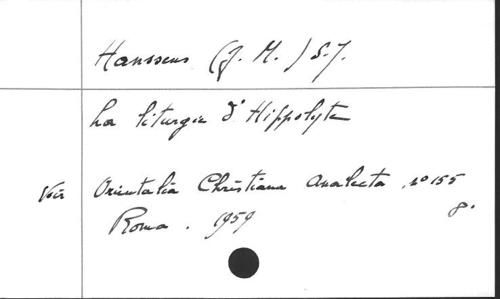 Hanssens (J. M.) S.J.
La liturgie d'Hippolyte
Voir Orientalia Christiana Analecta, nº 155
8.
Roma. 1959